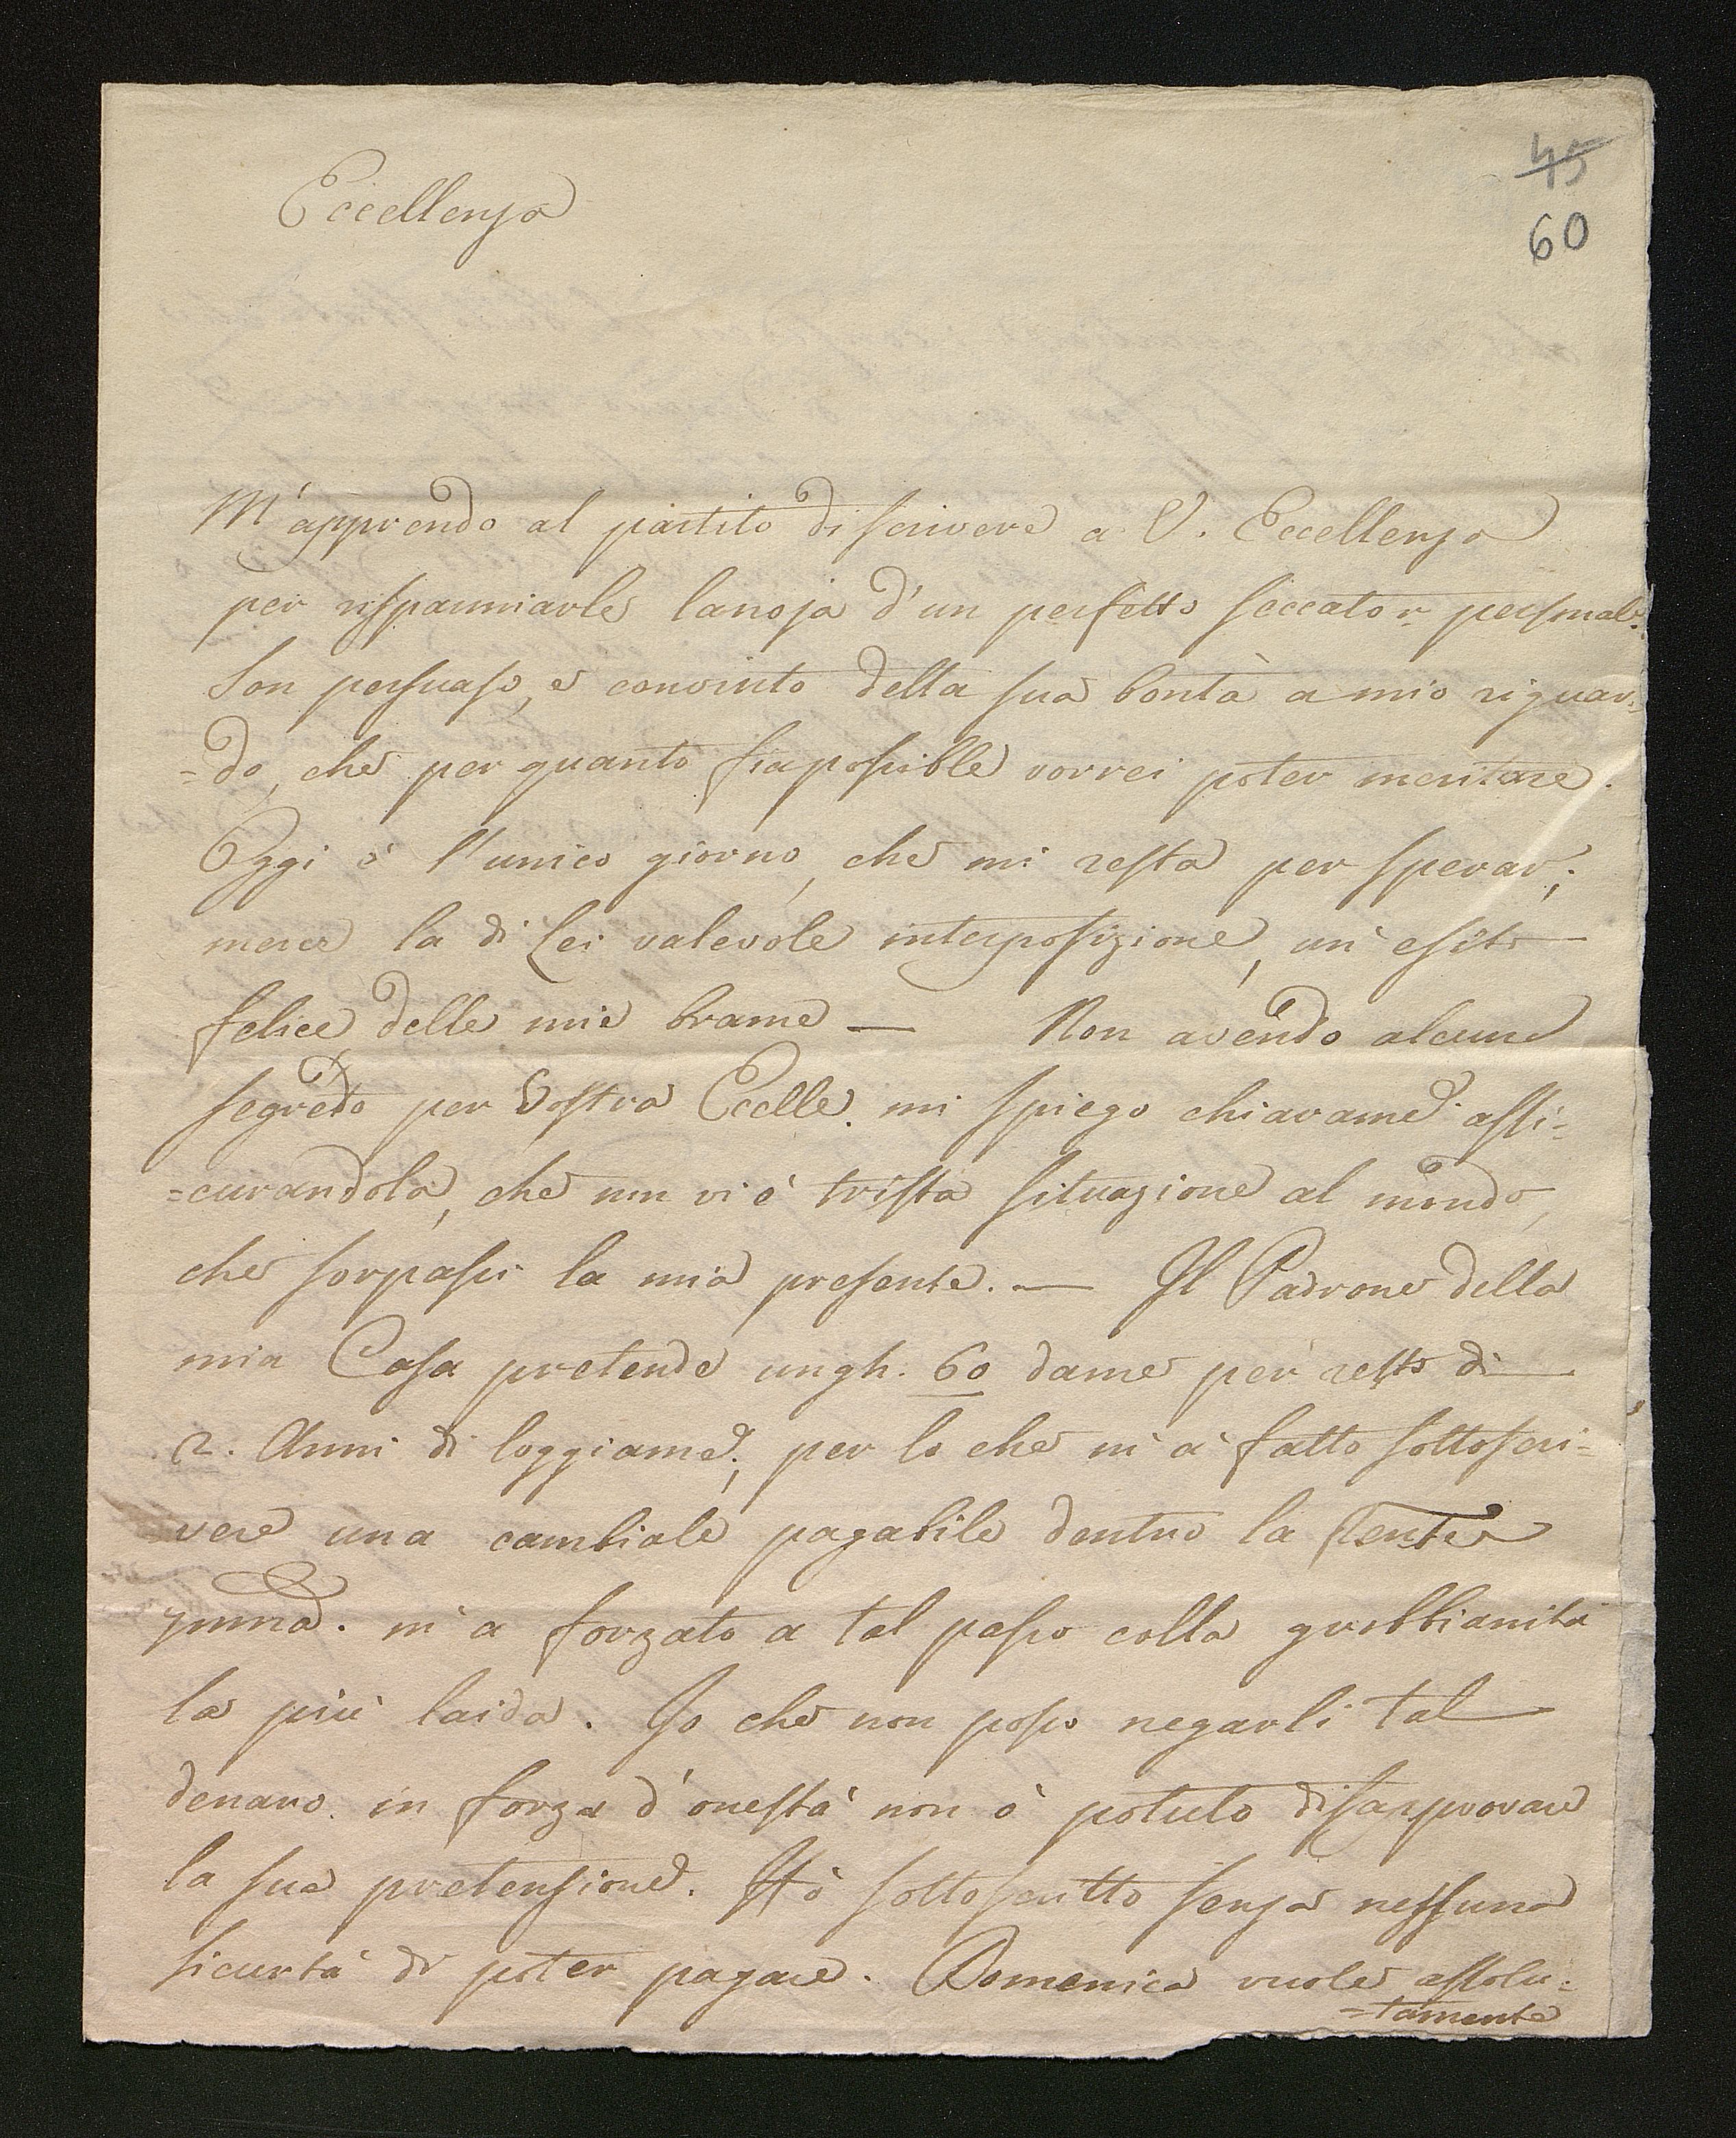 45
60
Eccellenza
M'apprendo al partito di scrivere a V. Eccellenza
per risparmiarle lanoja d'un perfetto seccator personale.
Son persuaso, e convinto della sua bontà a mio riguar=
=do, che per quanto sia possibile vorrei poter meritare.
Oggi è l'unico giorno, che mi resta per sperar;
merce la di Lei valevole interposizione, un' esito
felice delle mie brame — Non avendo alcune
segreto per Vostra Ecelle. mi spiego chiarame. assi=
=curandola, che non vi è trista situazione al mondo,
che sorpassi la mia presente. — Il Padrone della
mia Casa pretende ungh. 60 dame per resto di
2. Anni di loggiame., per lo che m'à fatto sottoscri=
vere una cambiale pagabile dentro la
m'a forzato a tal passo colla grobbianità
la più laida. Io che non posso negarli tal
denaro. in forza d'onestà non ò potuto disapprovare
la sua pretensione. Hò sottoscritto senza nessuna
sicurtà di poter pagare. Domenica vuole assolu=
=tamente